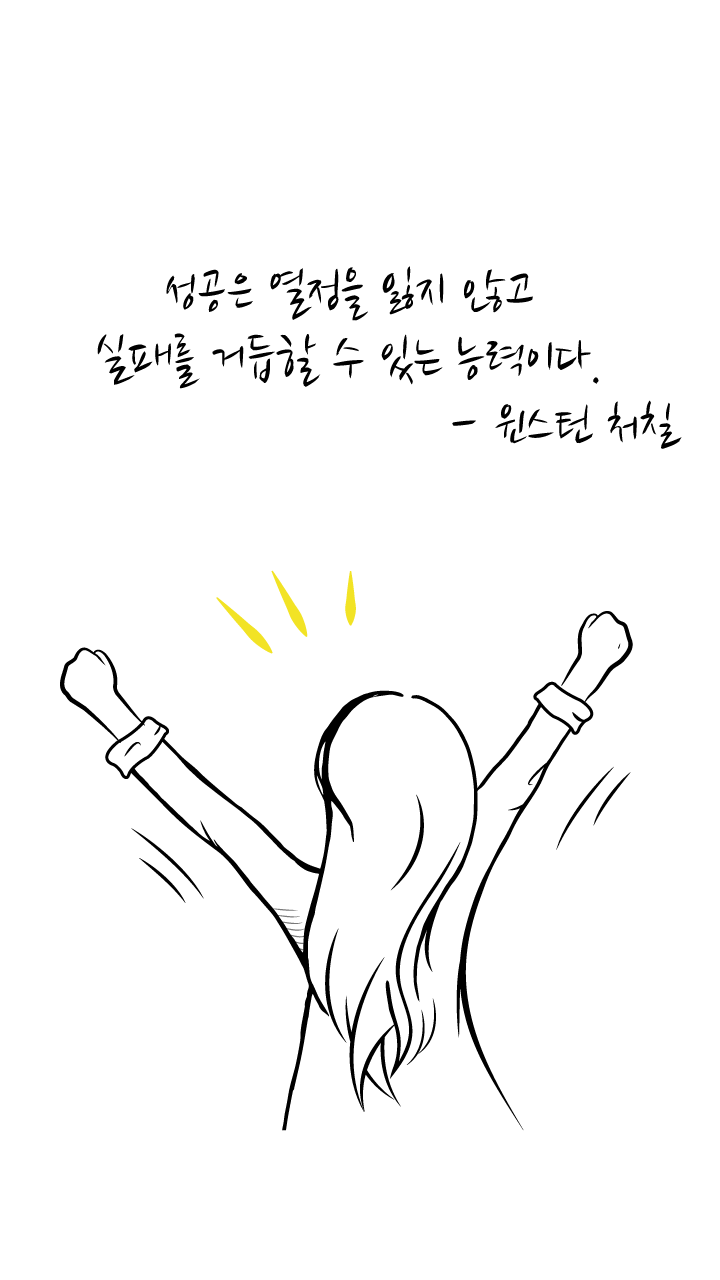 성공은 열정을 잃지 않고
실패를 거듭할 수 있는 능력이다.
- 윈스턴 처칠